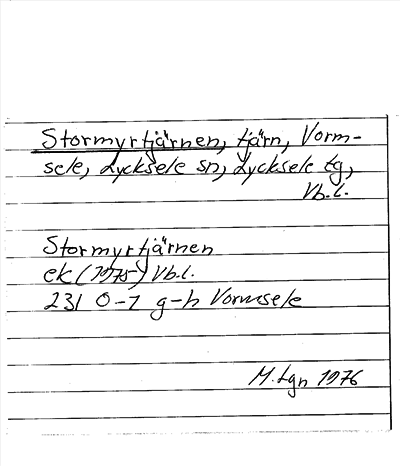 Stormyrtjärnen, tjärn, Vorm-
sele, Lycksele sn, Lycksele tg,
Vb.l.
Stormyrtjärnen
ek (1975) Vb.l.
23I 0-1 g-h Vormsele
M. Lgn 1976